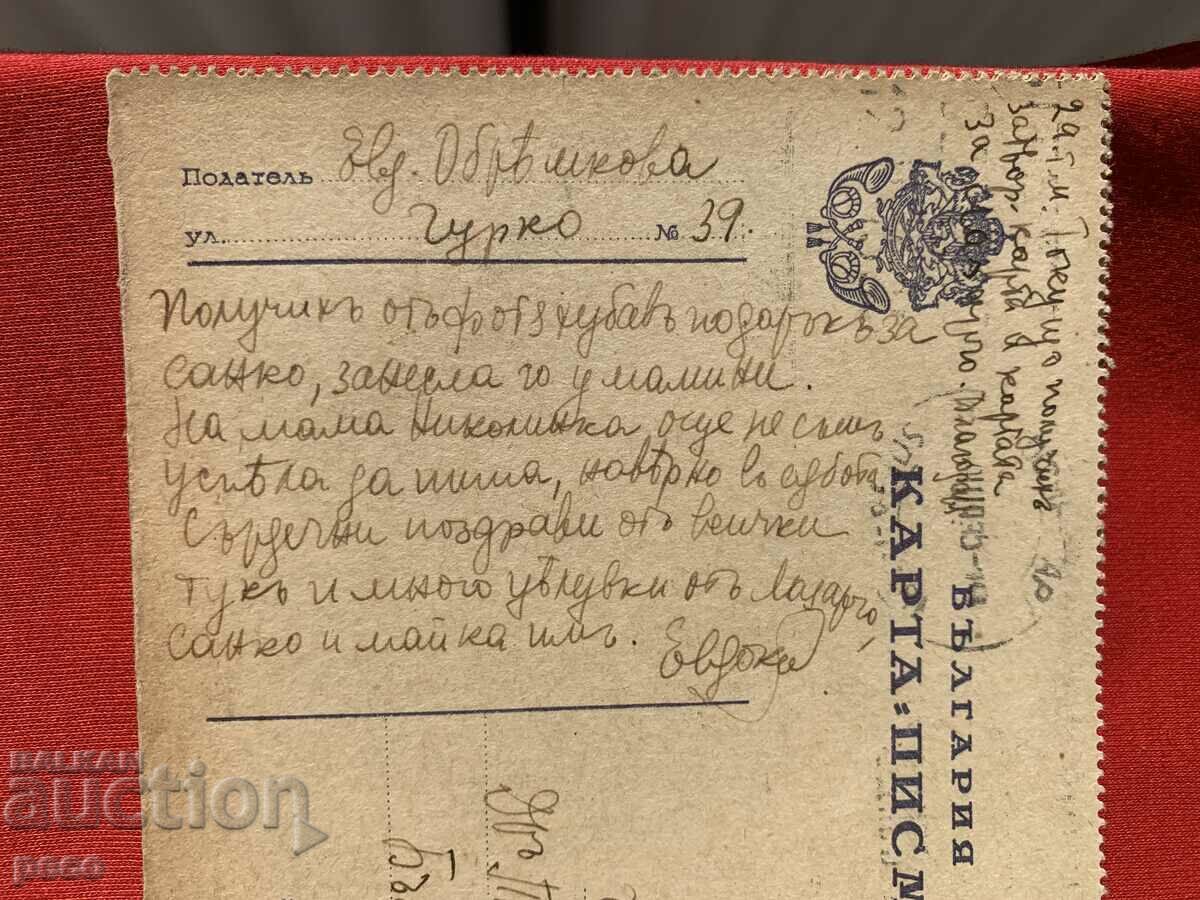 Податель Евд. Обрѣмкова
ул. Гурко № 39.
Получихъ отъ хубавъ подаръкъ за
Санко, занесла го у мамини.
На мама Николинка още не съмъ
успѣла да пиша, навѣрно въ събота
Сърдечни поздрави отъ всички
тукъ и много цѣлувки отъ Лазарчо,
Санко и майка имъ. Евдокия
29. т. м. Току що получихъ
затвор. карта и картата
за
БЪЛГАРИЯ
КАРТА-ПИСМ
BALKAN
auction
peso